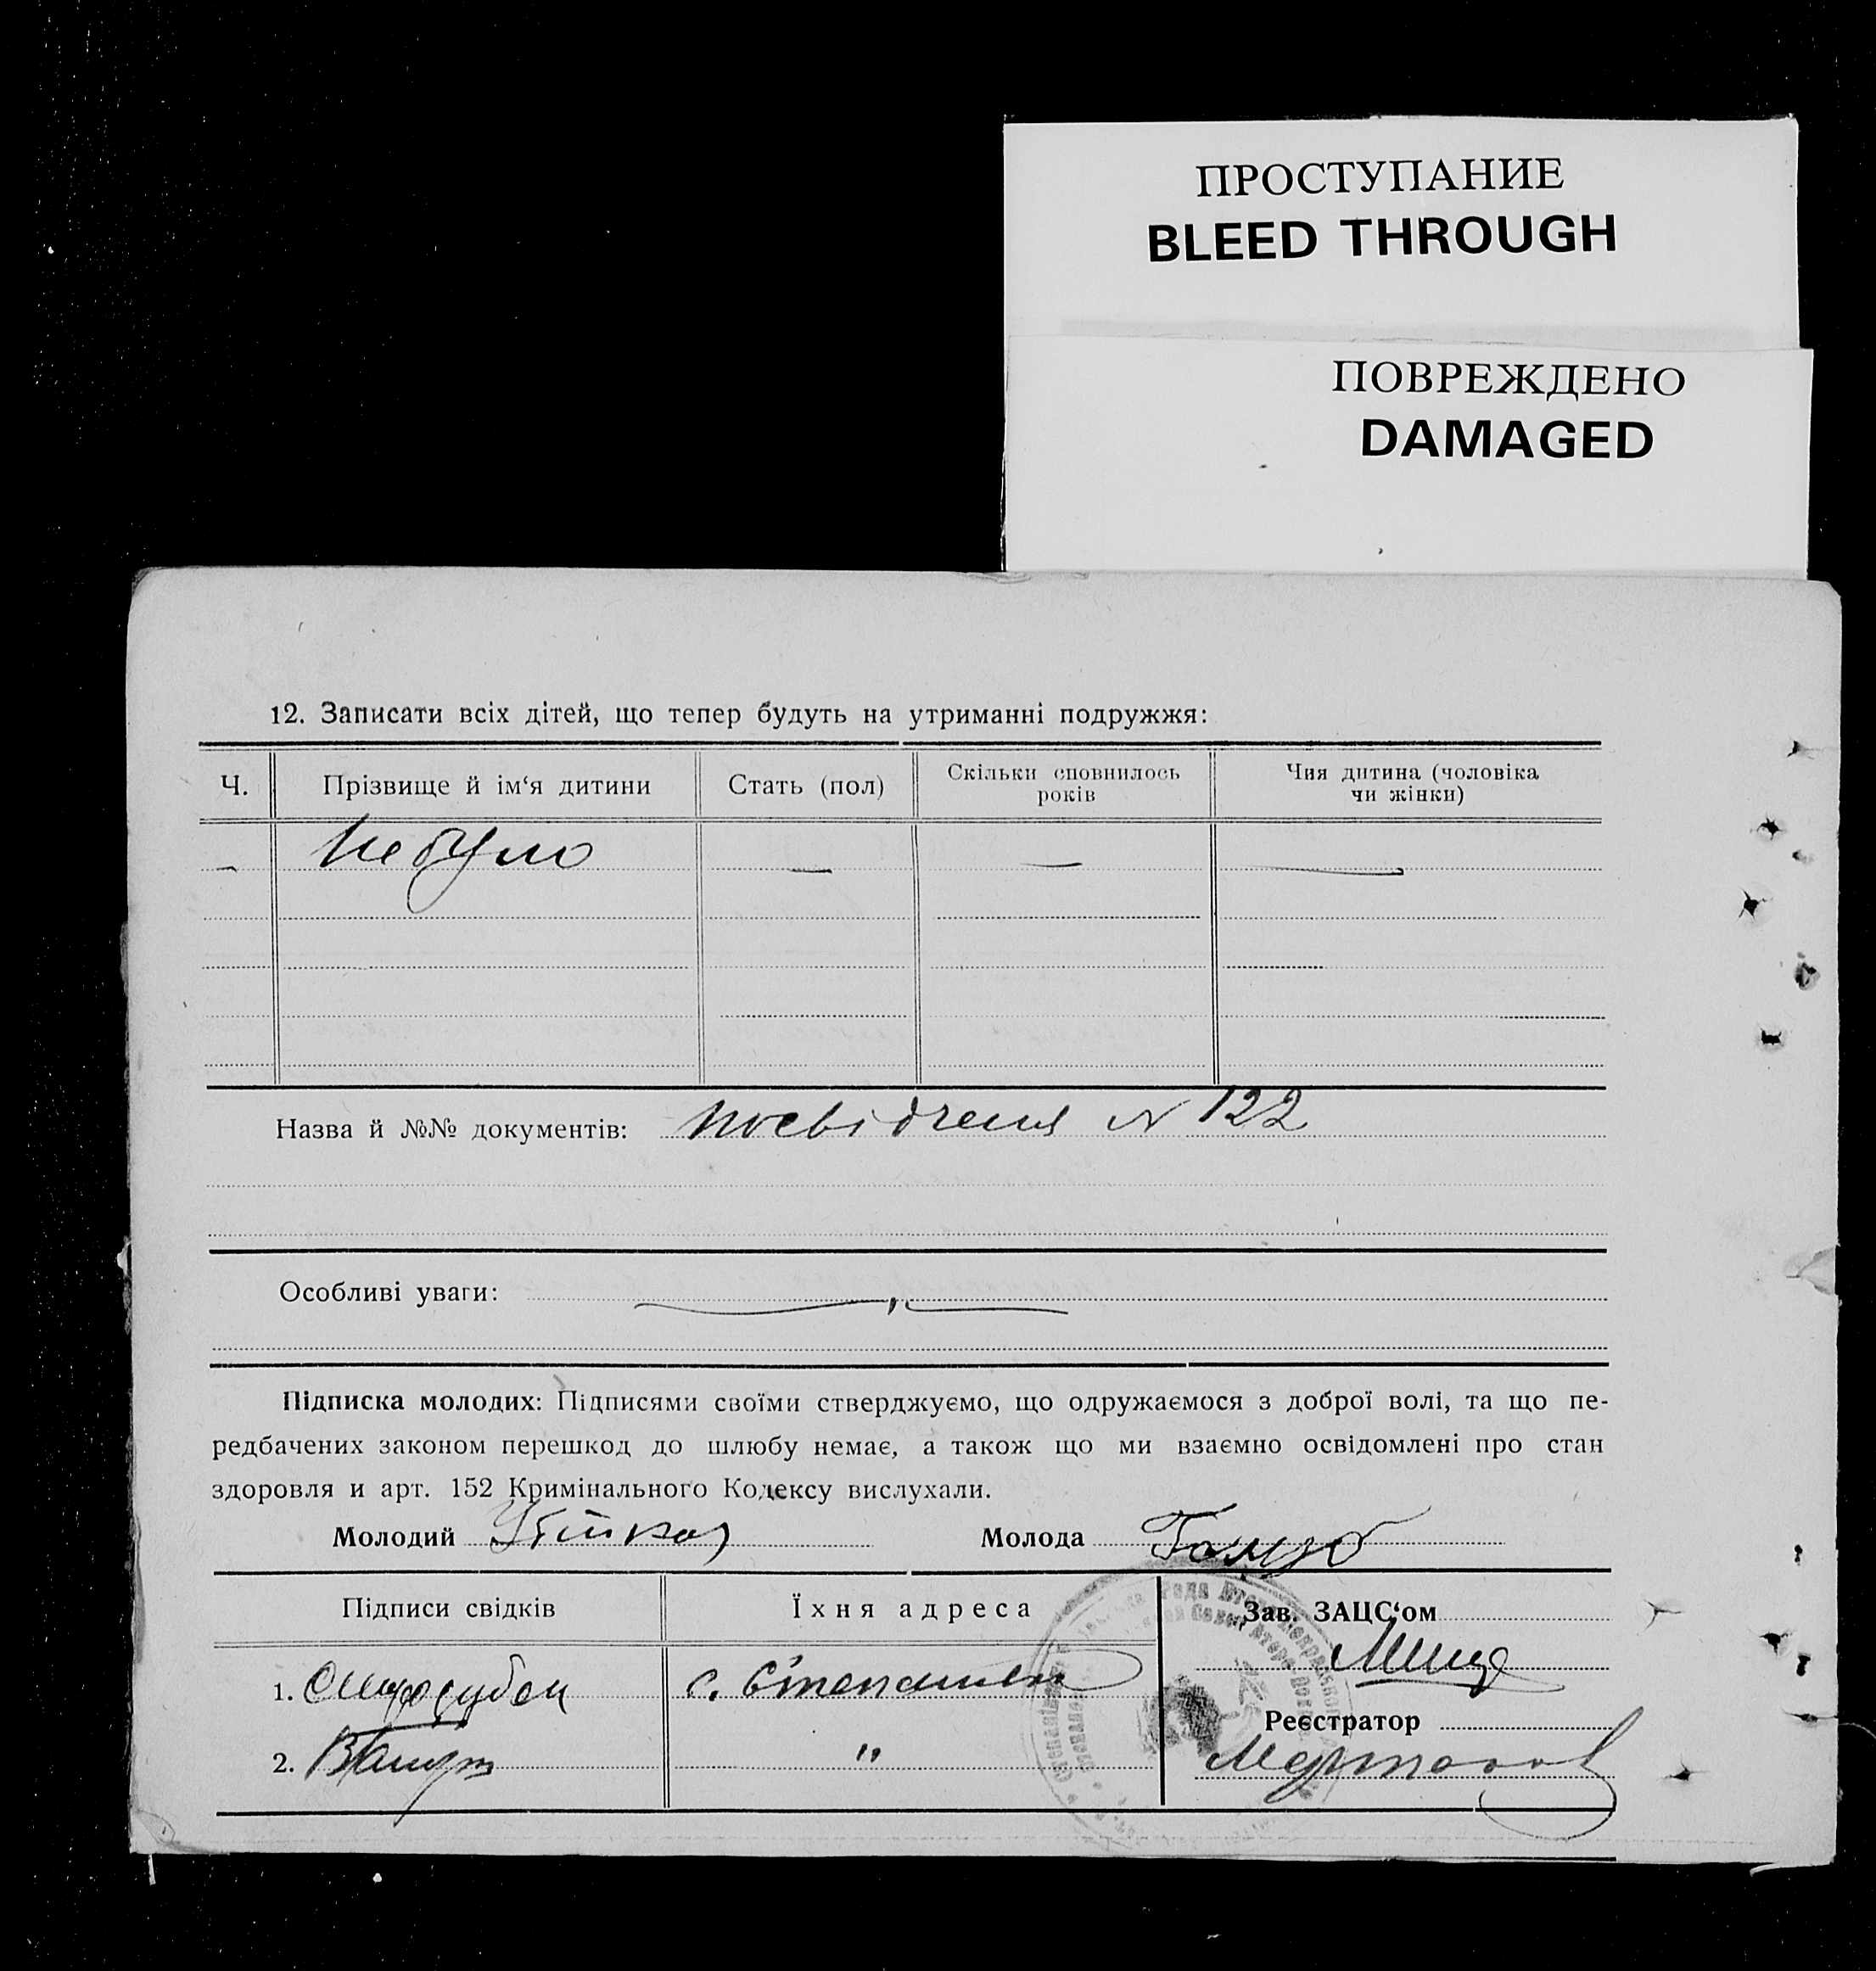 ПРОСТУПАНИЕ
BLEED THROUGH
ПОВРЕЖДЕНО
DAMAGED
12. Записати всіх дітей, що тепер будуть на утриманні подружжя:
Ч. Прізвище й ім‘я дитини Стать (пол) Скільки сповнилось років Чия дитина (чоловіка чи жінки)
— Не було — — —
Назва й №№ документів: посвідченя N 122
Особливі уваги:
Підписка молодих: Підписями своїми стверджуємо, що одружаємося з доброї волі, та що пе-
редбачених законом перешкод до шлюбу немає, а також що ми взаємно освідомлені про стан
здоровля и арт. 152 Кримінального Кодексу вислухали.
Молодий Молода
Підписи свідків Їхня адреса Зав. ЗАЦС‘ом
1. с.
Реєстратор
2. "